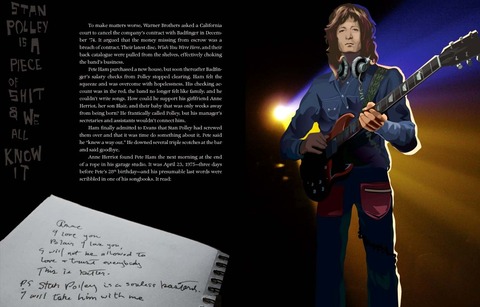 STAN
POLLEY
IS A
PIECE
OF
SHIT
& WE
ALL
KNOW
IT
To make matters worse, Warner Brothers asked a California
court to cancel the company's contract with Badfinger in Decem-
ber '74. It argued that the money missing from escrow was a
breach of contract. Their latest disc, Wish You Were Here, and their
back catalogue were pulled from the shelves, effectively choking
the band's business.
Pete Ham purchased a new house, but soon thereafter Badfin-
ger's salary checks from Polley stopped clearing. Ham felt the
squeeze and was overcome with hopelessness. His checking ac-
count was in the red, the band no longer felt like family, and he
couldn't write songs. How could he support his girlfriend Anne
Herriot, her son Blair, and their baby that was only weeks away
from being born? He frantically called Polley, but his manager's
secretaries and assistants wouldn't connect him.
Ham finally admitted to Evans that Stan Polley had screwed
them over and that it was time do something about it. Pete said
he "knew a way out." He downed several triple scotches at the bar
and said goodbye.
Anne Herriot found Pete Ham the next morning at the end
of a rope in his garage studio. It was April 23, 1975—three days
before Pete's 28th birthday—and his presumable last words were
scribbled in one of his songbooks. It read:
Anne
I love you
Blair, I love you,
I will not be allowed to
love & trust everybody
This is better.
PS Stan Polley is a soulless bastard.
I will take him with me